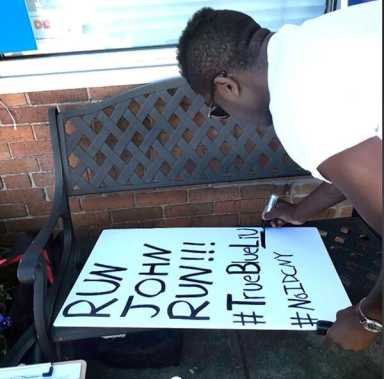 RUN
JOHN
RUN!!!
#TrueBlueLIV
#NoIDCNY